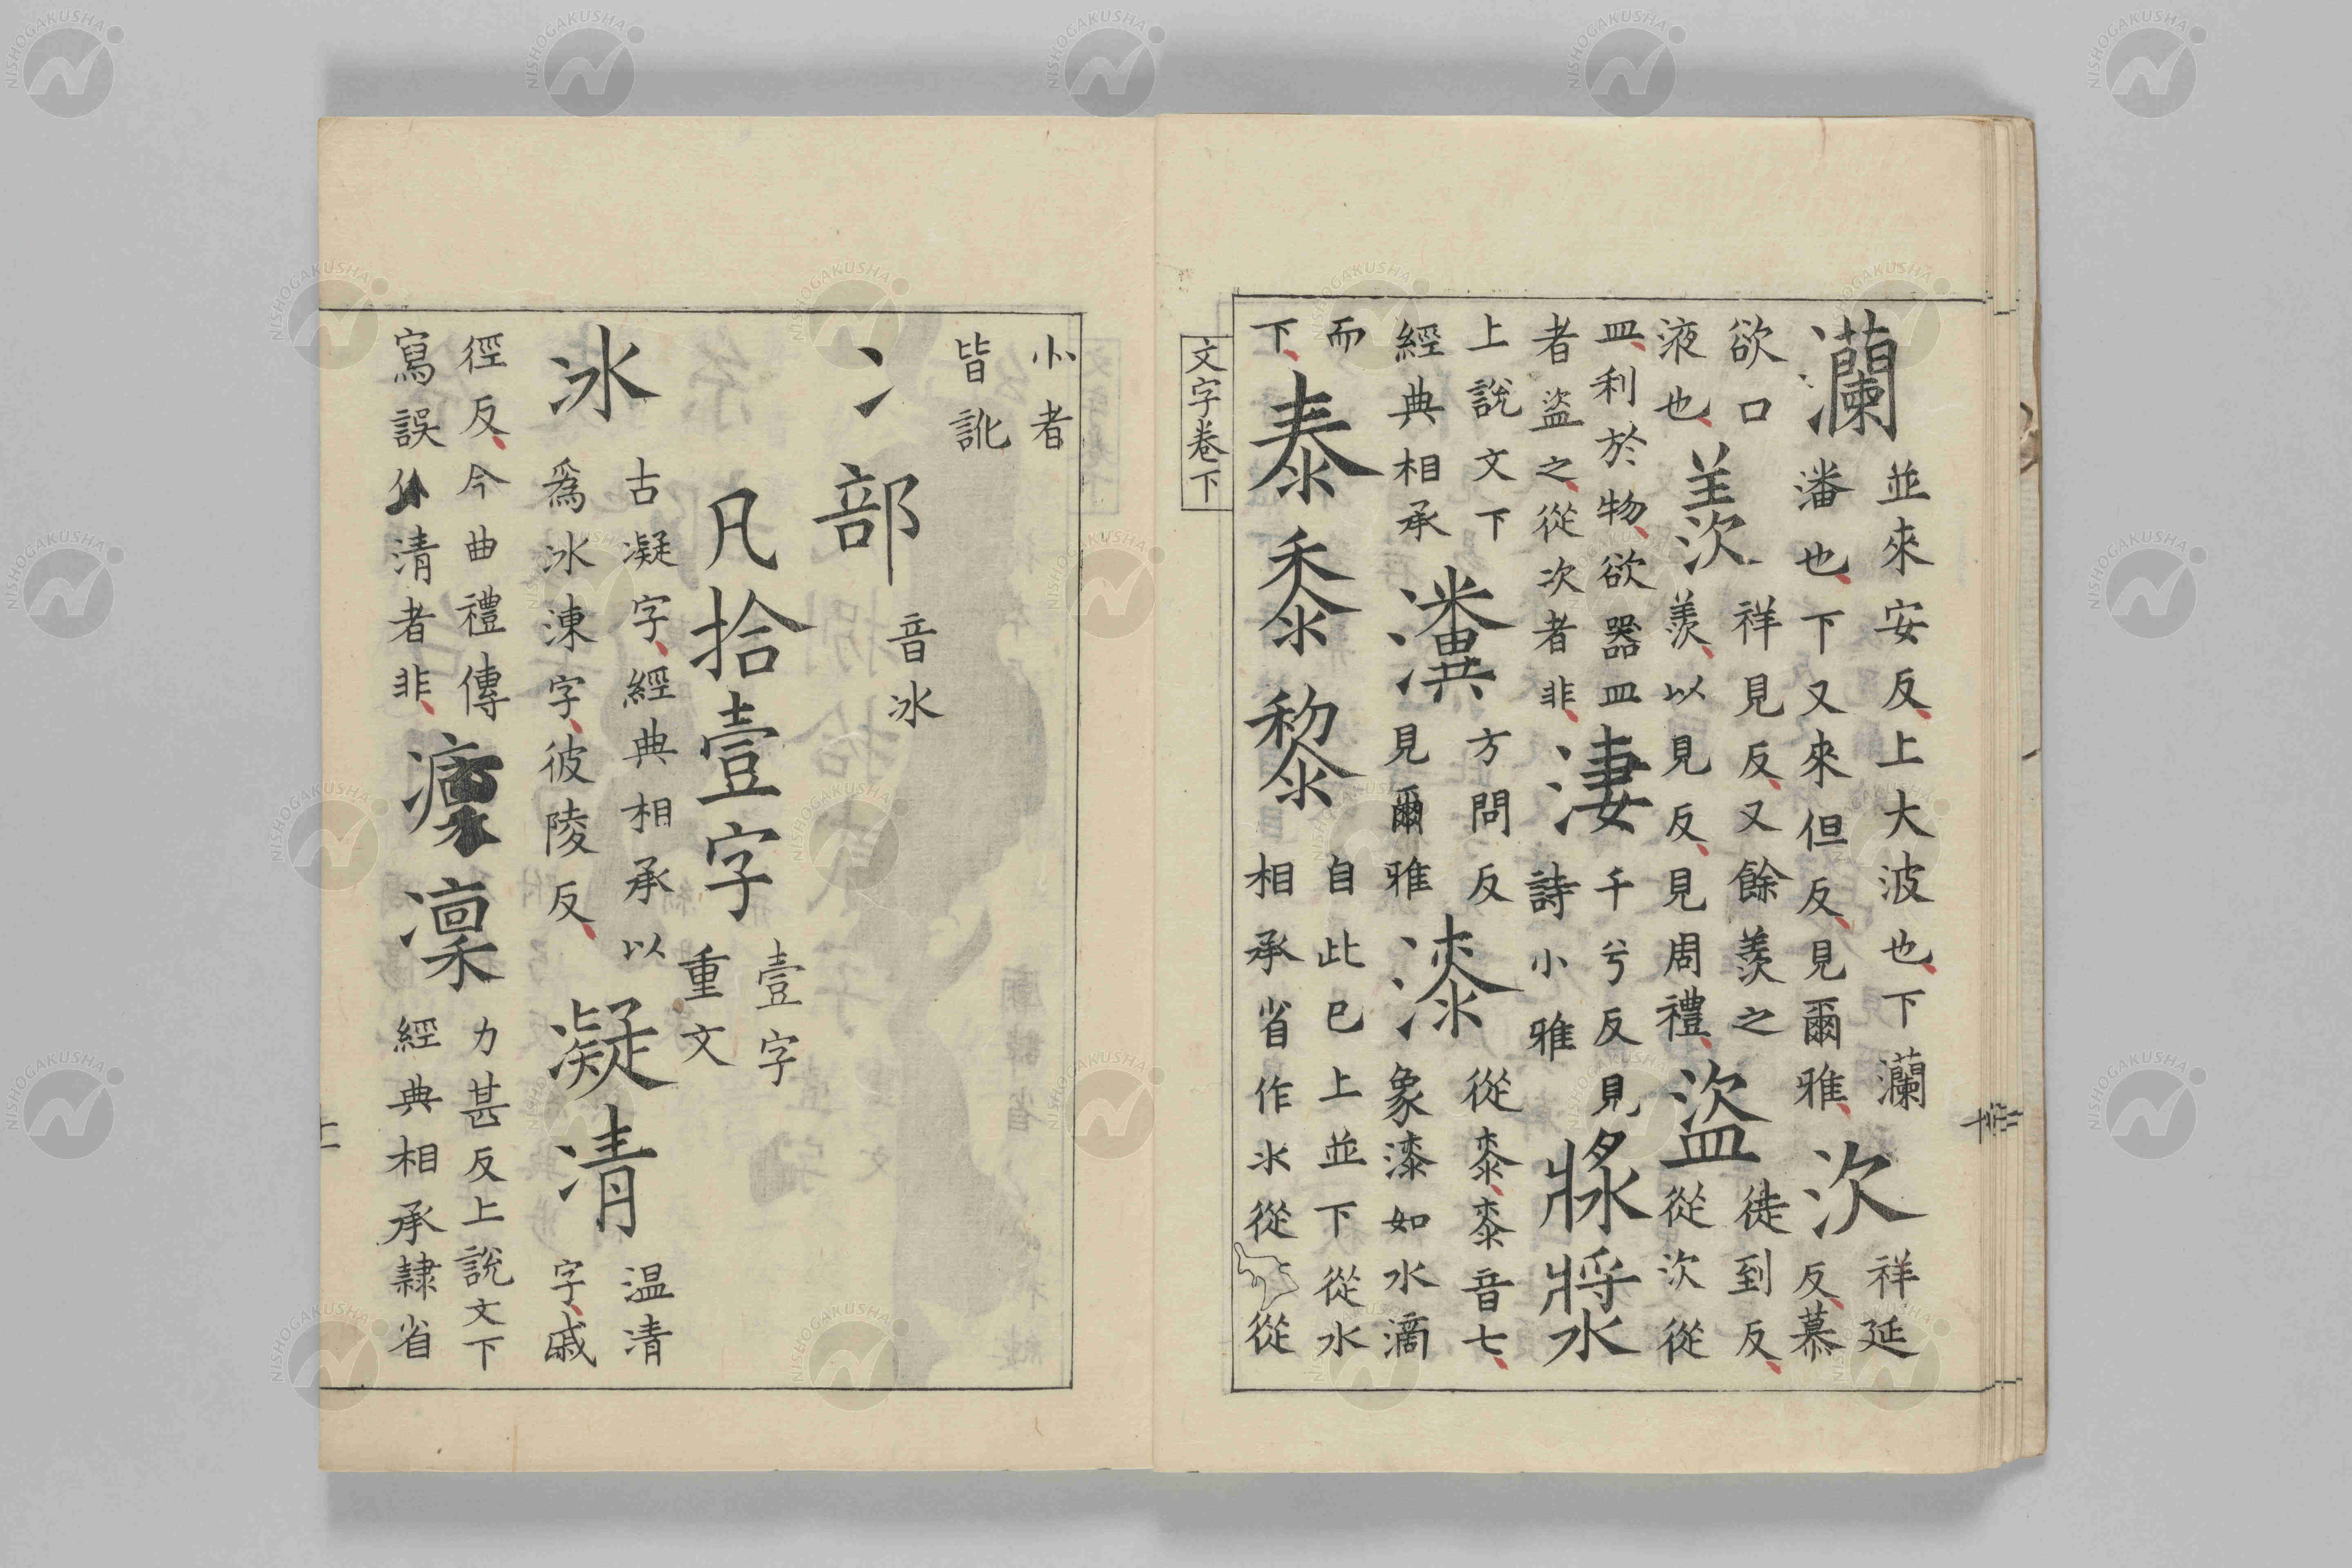 瀾並來安反上大波也下瀾
潘也下又來但反見爾雅㳄祥延
反慕
欲口
液也羨祥見反又餘羨之
羨以見反見周禮盜徒到反
從㳄從
皿利於物欲器皿
者盜之從次者非淒千兮反見
詩小雅
上說文下
經典相承瀵方問反
見爾雅漆從桼桼音七
象漆如水滴
而
下泰黍黎自此已上並下從水
相承省作氺從
從
文字卷下
小者
皆訛
冫部音冰
凡拾壹字壹字
重文
冰古凝字經典相承以
爲冰凍字彼陵反凝凊温凊
字戚
徑反今曲禮傳
寫誤作清者非凛力甚反上說文下
經典相承隸省
NISHOGAKUSHA